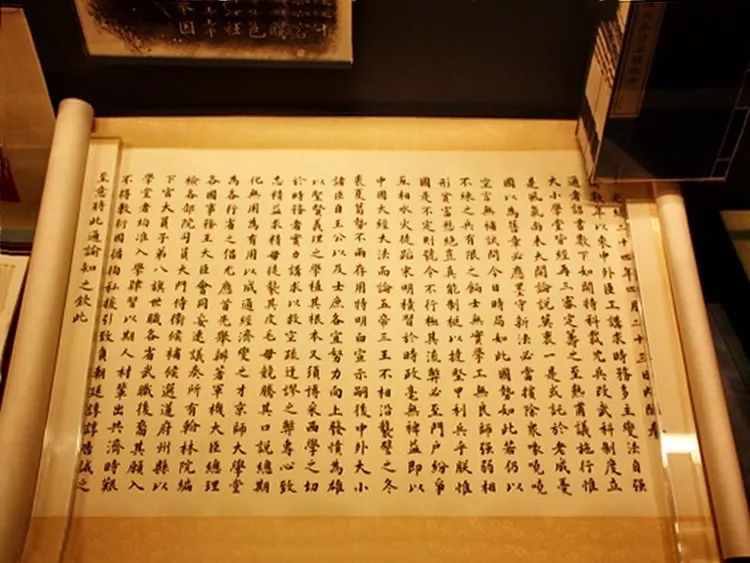 緒二十四年四月二十三日內閣奉
諭數年以來中外臣工講求時務多主變法自強
邇者詔書數下如開特科裁冗兵改武科制度立
大小學堂皆經再三審定籌之至熟甫議施行惟
是風氣尚未大開論說莫衷一是或託於老成憂
國以為舊章必應墨守新法必當擯除眾喙嘵嘵
空言無補試問今日時局如此國勢如此若仍以
不練之兵有限之餉士無實學工無良師強弱相
形貧富懸絕豈真能制梃以撻堅甲利兵乎朕惟
國是不定則號令不行極其流弊必至門戶紛爭
互相水火徒蹈宋明積習於時政毫無裨益即以
中國大經大法而論五帝三王不相沿襲譬之冬
裘夏葛勢不兩存用特明白宣示嗣後中外大小
諸臣自王公以及士庶各宜努力向上發憤為雄
以聖賢義理之學植其根本又須博采西學之切
於時務者實力講求以救空疏迂謬之弊專心致
志精益求精毋徒襲其皮毛毋競騰其口說總期
化無用為有用以成通經濟變之才京師大學堂
為各行省之倡尤應首先舉辦著軍機大臣總理
各國事務王大臣會同妥速議奏所有翰林院編
檢各部院司員大門侍衛候補候選道府州縣以
下官大員子弟八旗世職各省武職後裔其願入
學堂者均准入學肄習以期人材輩出共濟時艱
不得敷衍因循徇私援引致負朝廷諄諄告誡之
至意將此通諭知之欽此